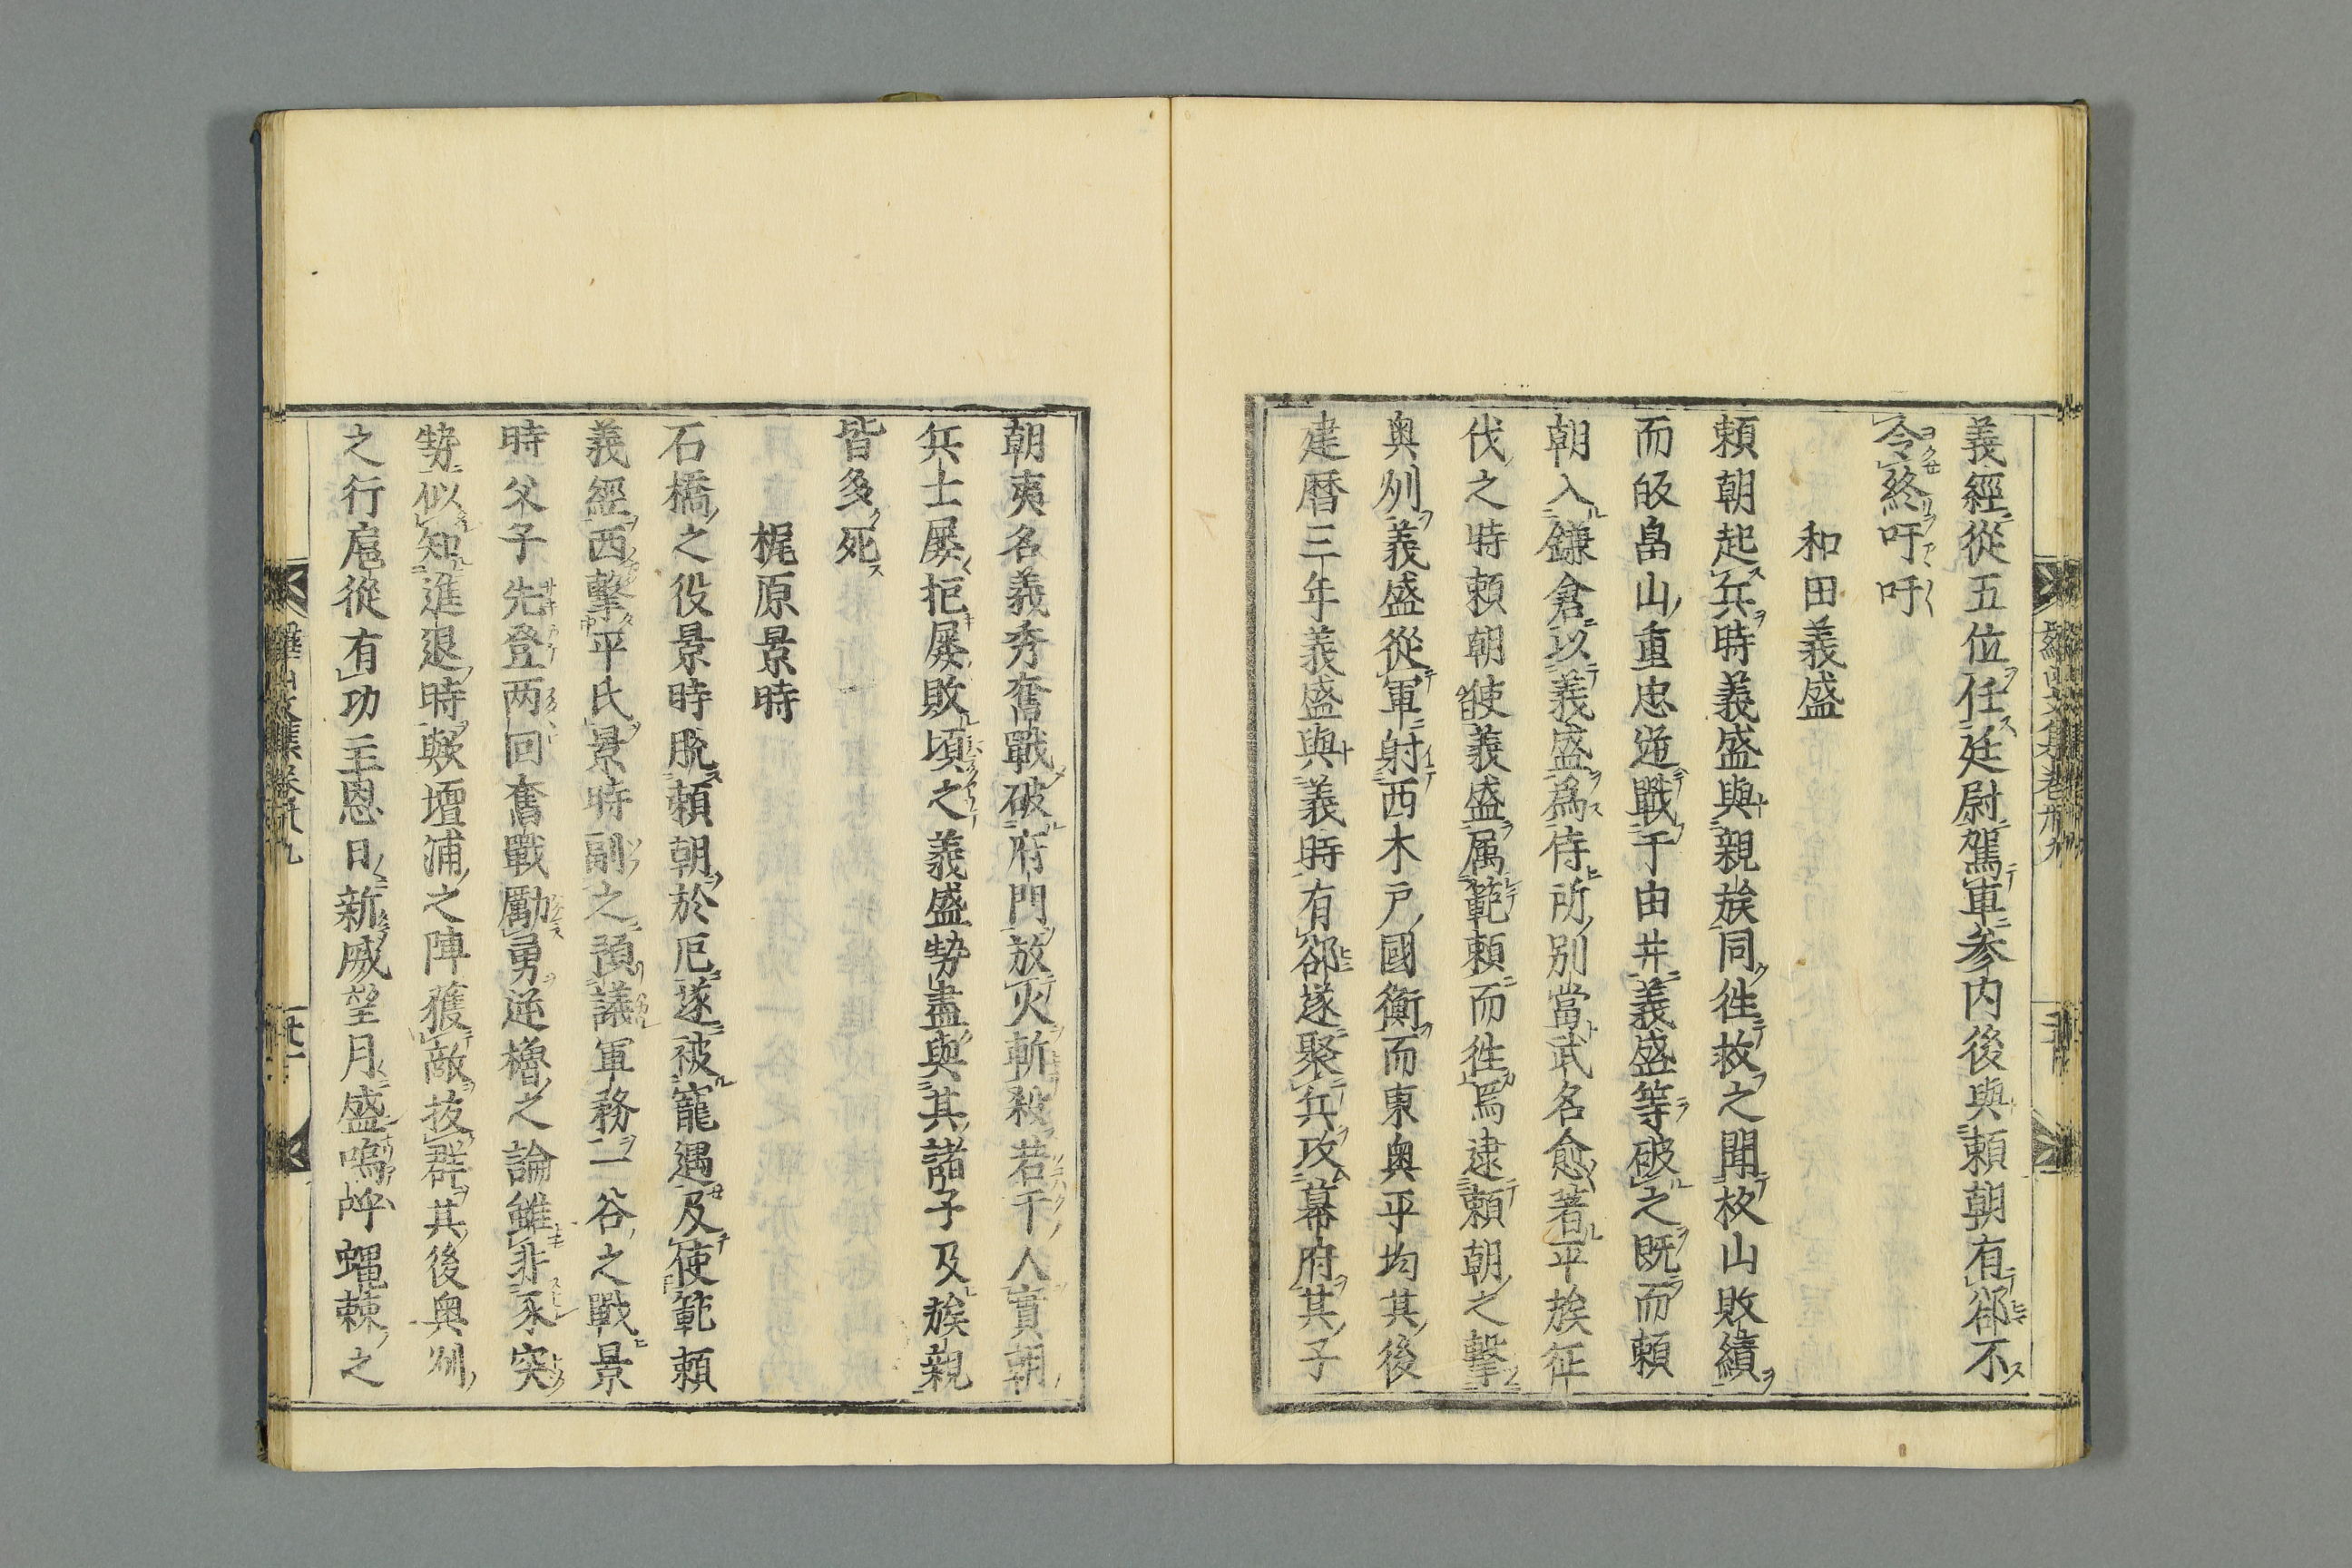 義經從五位任廷尉駕車参内後與頼朝有郤不
令終吁吁
和田義盛
頼朝起兵時義盛與親族同徃救之聞杦山敗績
而皈畠山重忠逆戰于由井義盛等破之既而頼
朝入鎌倉以義盛爲侍所別當武名愈著平族征
伐之時頼朝使義盛属範頼而徃焉逮頼朝之撃
奥州義盛從軍射西木戸國衡而東奥平均其後
建暦三年義盛與義時有郤遂聚兵攻幕府其子
朝夷名義秀奮戰破府門放火斬殺若干人實朝
兵士屡拒屡敗頃之義盛勢盡與其諸子及族親
皆多死
梶原景時
石橋之役景時脱頼朝於厄遂被寵遇及使範頼
義經西撃平氏景時副之預議軍務一谷之戰景
時父子先登两回奮戰勵勇逆櫓之論雖非豕突
勢似知進退時歟壇浦之陣獲敵抜群其後奥州
之行扈從有功主恩日新威望月盛嗚呼蝿棘之
羅山文集卷卅九